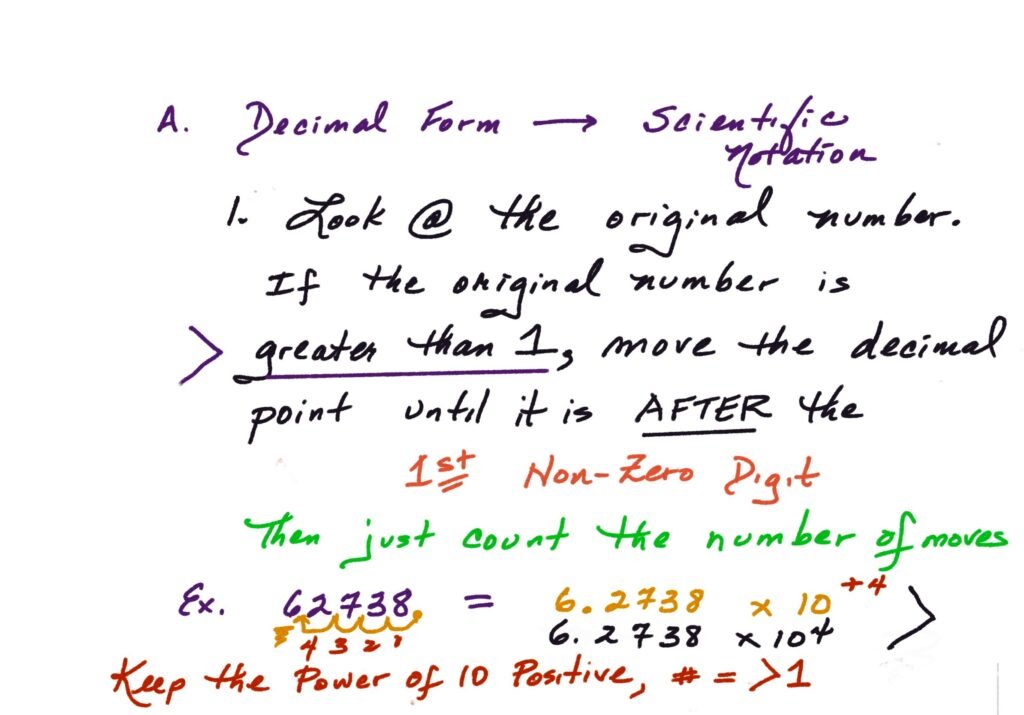 A. Decimal Form → Scientific
Notation
1. Look @ the original number.
If the original number is
> greater than 1, move the decimal
point until it is AFTER the
1st Non-Zero Digit
Then just count the number of moves
Ex. 62738. = 6.2738 x 10+4 >
4 3 2 1 6.2738 x 104
Keep the Power of 10 Positive, # = >1